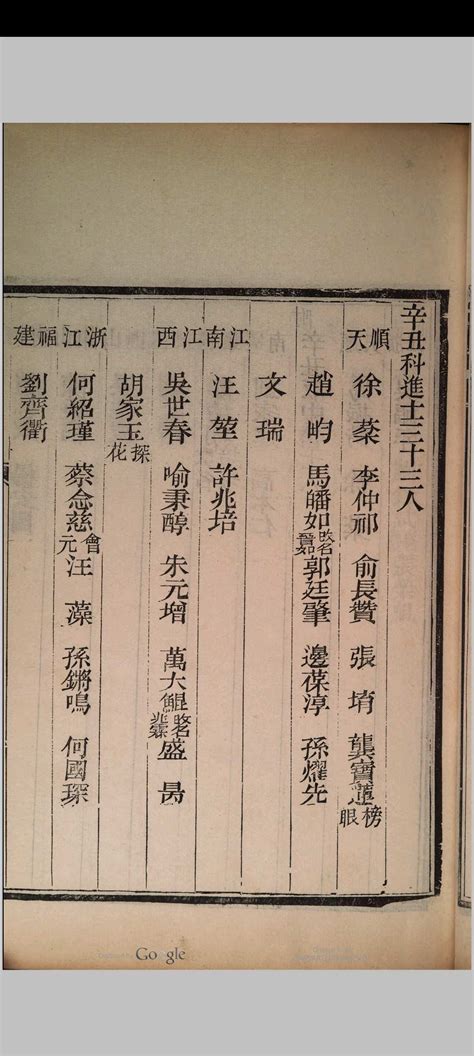 辛丑科進士三十三人
順天 徐棻 李仲祁 俞長贊 張堉 龔寶蓮榜眼
趙畇 馬皤如 郭廷肇 邊葆淳 孫燿先
文瑞
江南 汪堃 許兆培
江西 吳世春 喻秉醇 朱元增 萬大鯤 盛昺
胡家玉探花
浙江 何紹瑾 蔡念慈會元 汪藻 孫鏘鳴 何國琛
福建 劉齊衢
Google